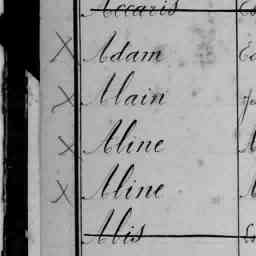 Accaris
X Adam
X Alain
X Aline
X Aline
Alis